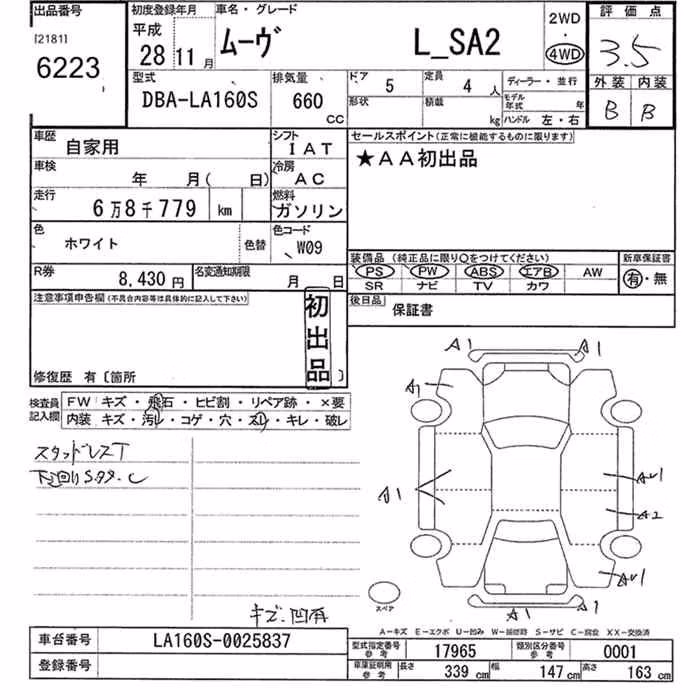 出品番号 初度登録年月 車名・グレード 2WD・4WD 評価点
[2181] 平成 28年 11月 ムーヴ L_SA2 3.5
6223
型式 排気量 ドア 5 定員 4人 ディーラー・並行 外装 内装
DBA-LA160S 660 CC 形状 積載 kg モデル年式 年 B B
ハンドル 左・右
車歴 自家用 シフト IAT セールスポイント(正常に機能するものに限ります)
車検 年 月( 日) 冷房 AC ★AA初出品
走行 6万8千779 km 燃料 ガソリン
色 ホワイト 色替 色コード W09
装備品 (純正品に限り○をつけてください) 新車保証書
PS PW ABS エアB AW 有・無
SR ナビ TV カワ
R券 8,430円 名変通知期限 月 日
後日品 保証書
注意事項申告欄(不具合内容等は具体的に記入して下さい)
初出品
修復歴 有〔箇所 〕
検査員記入欄 FW キズ・飛石・ヒビ割・リペア跡・×要
内装 キズ・汚レ・コゲ・穴・スレ・キレ・破レ
スタッドレスT
下廻りSサビ・C
A1 A1
A1
A1 AU1
A2
AU1
A1 A1
スペア
キズ・凹有
A-キズ E-エクボ U-凹み W-補修跡 S-サビ C-腐食 XX-交換済
車台番号 LA160S-0025837
登録番号
型式指定番号 参考 17965 類別区分番号 参考 0001
車庫証明用 参考 長さ 339 cm 幅 147 cm 高さ 163 cm